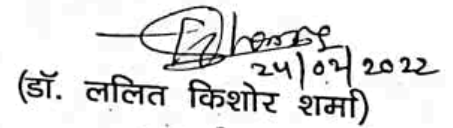 24/02/2022
(डॉ. ललित किशोर शर्मा)